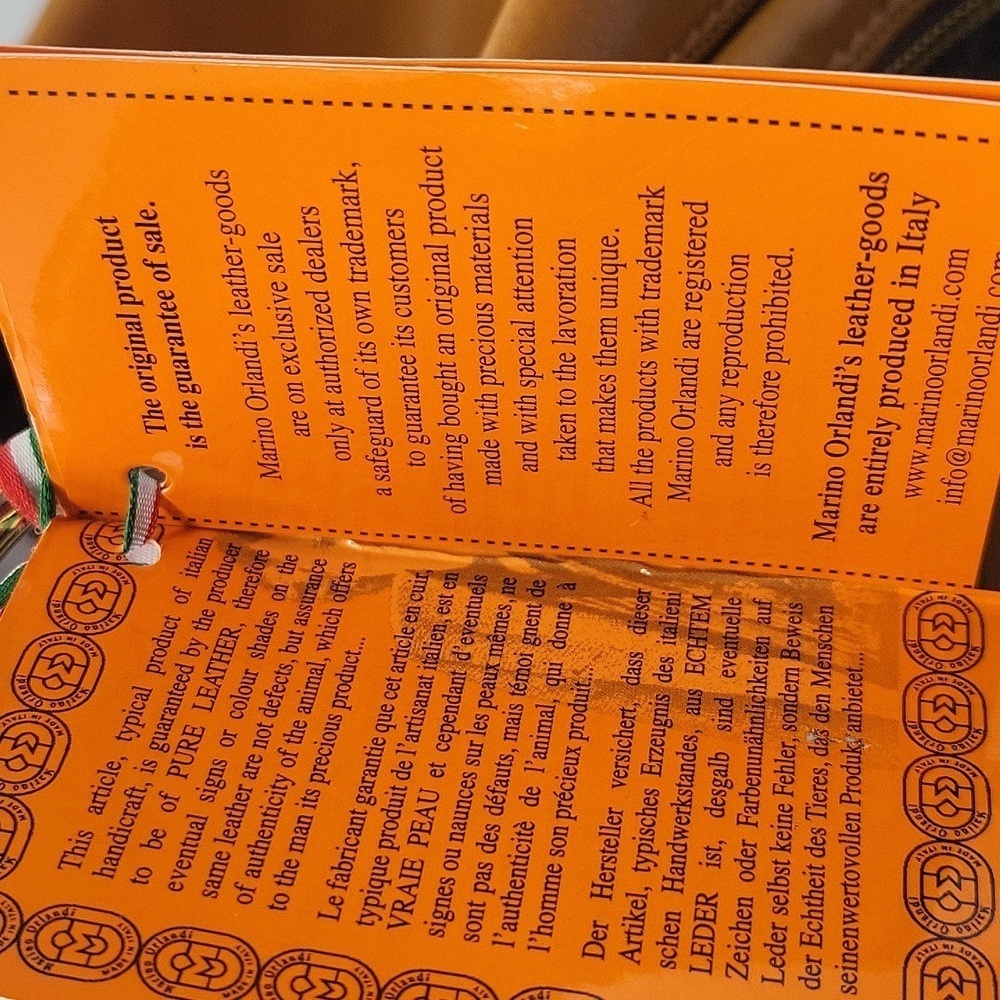 The original product
is the guarantee of sale.
Marino Orlandi's leather-goods
are on exclusive sale
only at authorized dealers
a safeguard of its own trademark,
to guarantee its customers
of having bought an original product
made with precious materials
and with special attention
taken to the lavoration
that makes them unique.
All the products with trademark
Marino Orlandi are registered
and any reproduction
is therefore prohibited.
Marino Orlandi's leather-goods
are entirely produced in Italy
www.marinoorlandi.com
info@marinoorlandi.com
This article, typical product of italian
handicraft, is guaranteed by the producer
to be of PURE LEATHER, therefore
eventual signs or colour shades on the
same leather are not defects, but assurance
of authenticity of the animal, which offers
to the man its precious product...
Le fabricant garantie que cet article en cuir,
typique produit de l'artisanat italien, est en
VRAIE PEAU et cependant d'éventuels
signes ou nauances sur les peaux mêmes, ne
sont pas des défauts, mais témoignent de
l'authenticitè de l'animal, qui donne à
l'homme son précieux produit...
Der Hersteller versichert, dass dieser
Artikel, typisches Erzeugnis des italieni
schen Handwerkstandes, aus ECHTEM
LEDER ist, desgalb sind eventuelle
Zeichen oder Farbenunähnlichkeiten auf
Leder selbst keine Fehler, sondern Beweis
der Echtheit des Tieres, das dem Menschen
seinenwertovollen Produkt anbietet...
Marino Orlandi
MADE IN ITALY